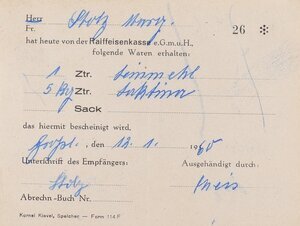 Herr Stolz Marg.
Fr. 26 ✻
hat heute von der Raiffeisenkasse e.G.m.u.H.,
folgende Waren erhalten:
1 Ztr.
5 Kg Ztr.
Sack
das hiermit bescheinigt wird,
, den 12. 1. 1960
Unterschrift des Empfängers: Ausgehändigt durch:
Stolz
Abrechn-Buch Nr.
Kornel Kievel, Speicher. — Form 114 F